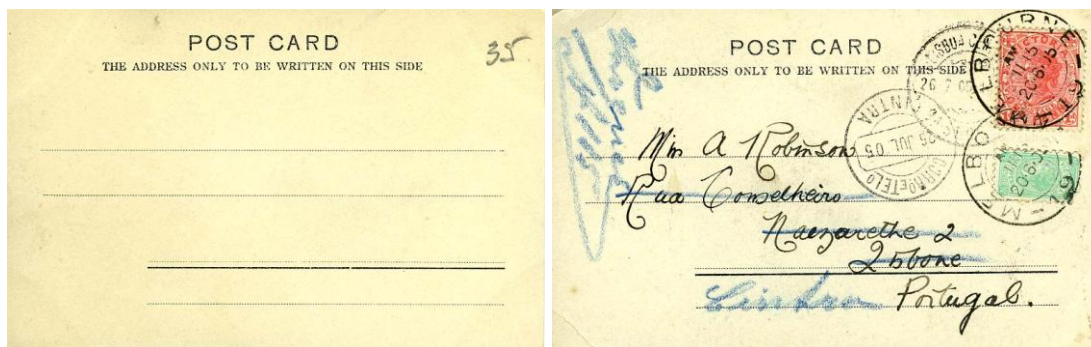 POST CARD
THE ADDRESS ONLY TO BE WRITTEN ON THIS SIDE
35
POST CARD
THE ADDRESS ONLY TO BE WRITTEN ON THIS SIDE
MELBOURNE
AM
11 15
20 6 05
26 7 05
CINTRA
26 JUL 05
MELBO
20 6 0
19
Miss A Robinson
Rua Conselheiro
Nazarethe 2
Lisbone
Cintra Portugal.